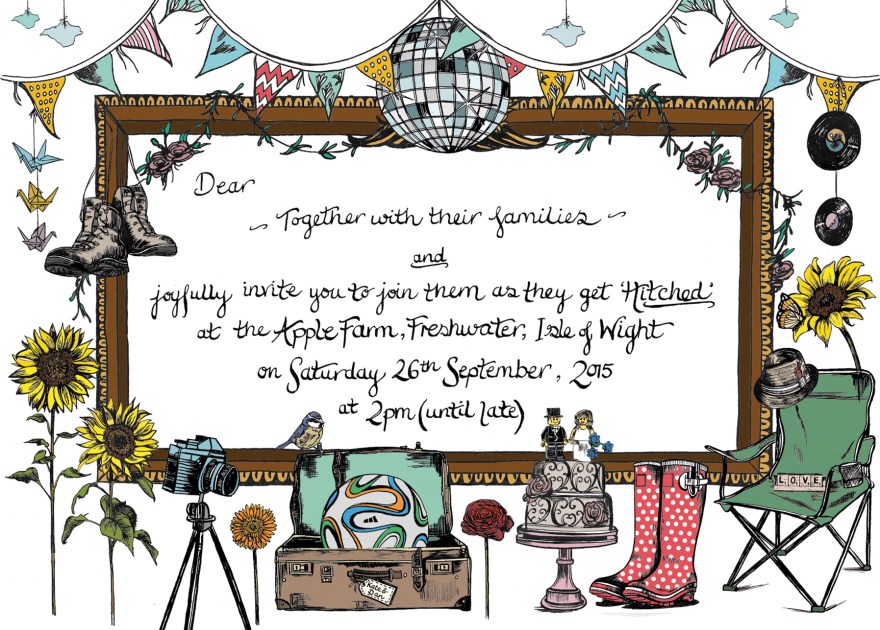 Dear
~ Together with their families ~
and
joyfully invite you to join them as they get 'Hitched'
at the Apple Farm, Freshwater, Isle of Wight
on Saturday 26th September, 2015
at 2pm (until late)
LOVE
Kate & Dan